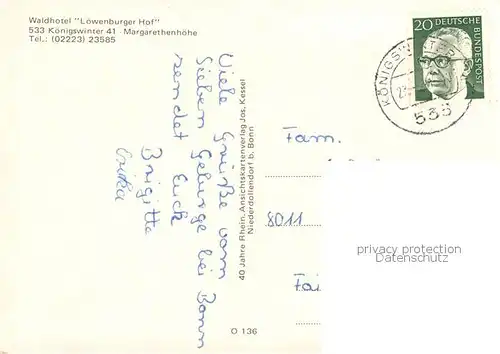 Waldhotel "Löwenburger Hof"
533 Königswinter 41 · Margarethenhöhe
Tel.: (02223) 23585
Viele Grüße vom
Sieben Gebirge bei Bonn
sendet Euch
Brigitte
Erika
40 Jahre Rhein. Ansichtskartenverlag Jos. Kessel
Niederdollendorf b. Bonn
O 136
20 DEUTSCHE
BUNDESPOST
KÖNIGSWINTER
533
Fam.
8011
privacy protection
Datenschutz